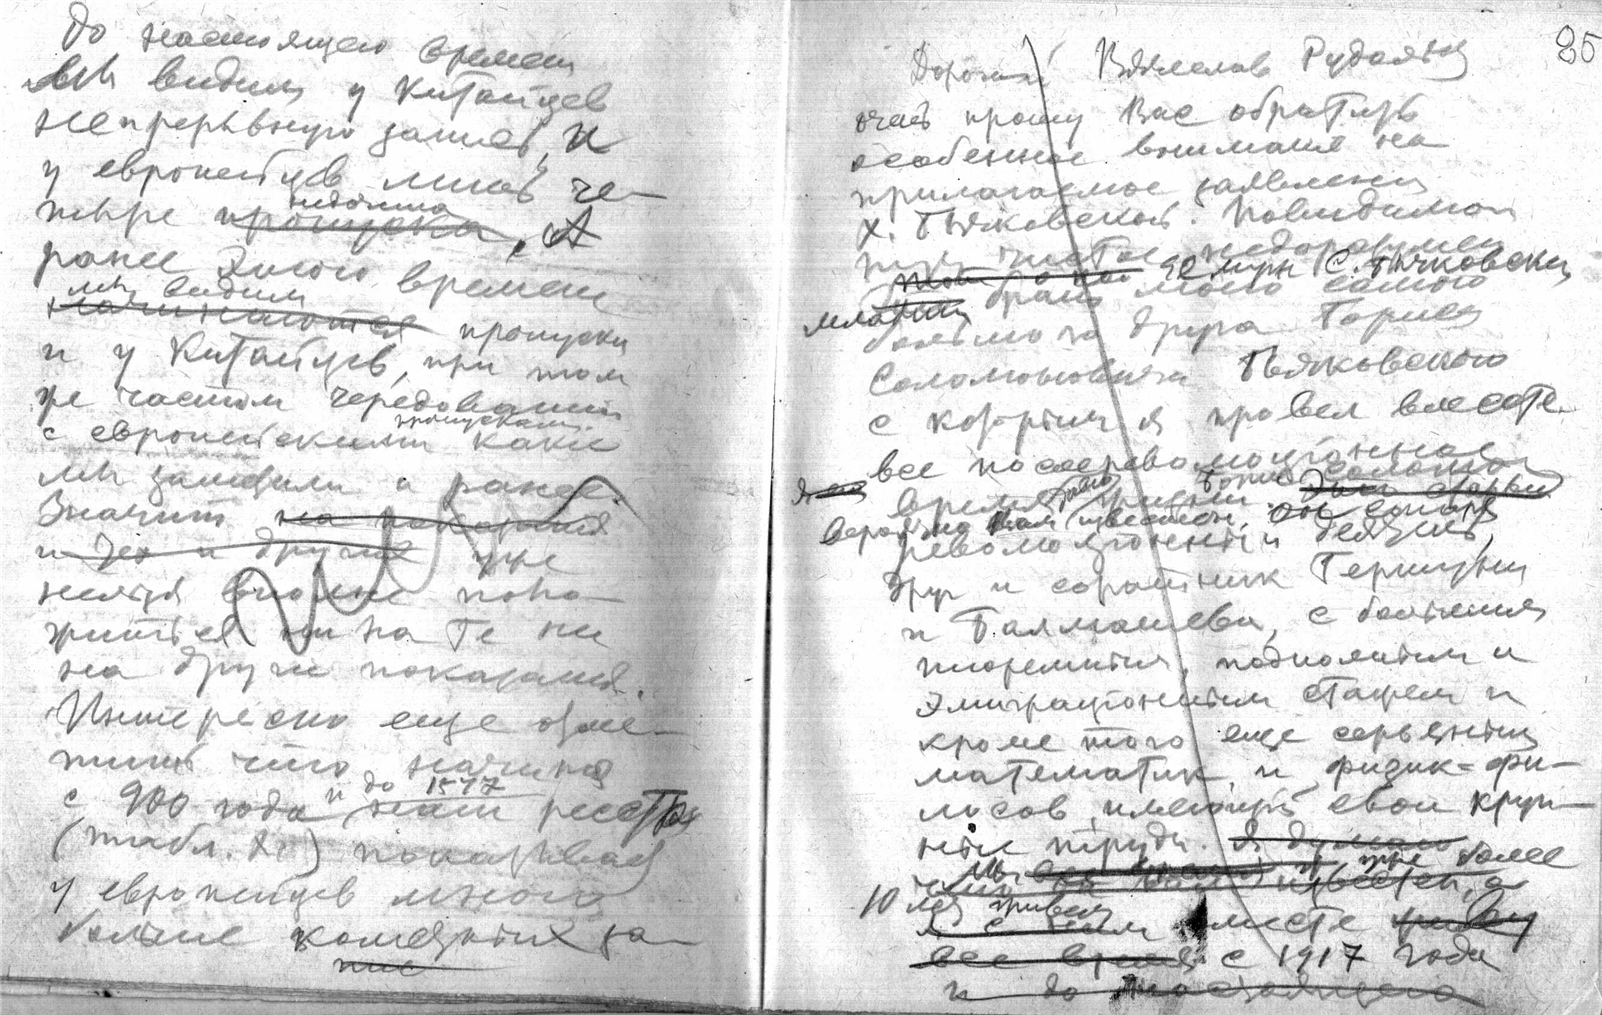 До настоящего времени
мы видим у Китайцев
непрерывную запись, и
у европейцев лишь че-
тыре недочета
пропуска, А
ранее этого времени
мы видим
начинаются пропуски
и у Китайцев, при том
же частом чередовании
пропусками
с европейскими какие
мы заметили и ранее.
Значит на показания
и тех и других уже
нельзя вполне поло-
житься ни на те ни
на другие показания.
Интересно еще отме-
тить что начиная
и до 1577
с 900 года наш реестр
(табл. ) показывает
у европейцев много
больше кометных за-
пис
85
Дорогой Вячеслав Рудольфович
очень прошу Вас обратить
особенное внимание на
прилагаемое заявление
Х. Пьяновской. Повидимому
тут чистое недоразумение
С.
младший брат моего самого
большого друга Бориса
Соломоновича
с которым я провел вместе
все послереволюционное
время жизни. Борис Соломонович
вероятно Вам известен, он старый
революционный деятель,
друг и соратник Гершуни
и Балмашева, с большим
тюремным, подпольным и
эмиграционным стажем и
кроме того еще серьезный
математик и физик-фи-
лософ, имеющий свои круп-
ные труды. Я думаю
мы уже более
чем он Вам известен, а
10 лет живем
я с ним вместе живу
все время с 1917 года
и до настоящего